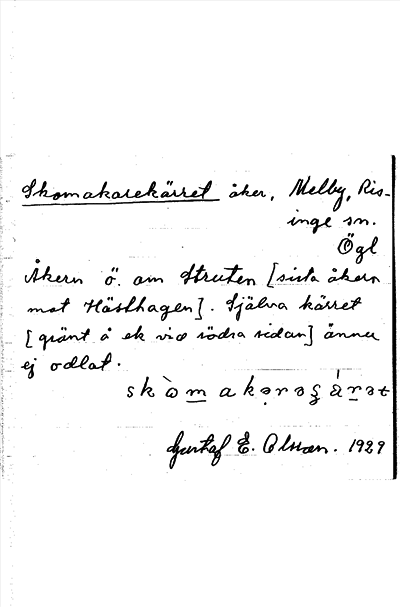 Skomakarekärret åker, Melby, Ris-
inge sn.
Ögl
Åkern ö. om Struten [sista åkern
mot Hästhagen]. Själva kärret
[gränt å ek vid södra sidan] ännu
ej odlat.
skòmakərəʒä́rət
Gustaf E. Olsson. 1929